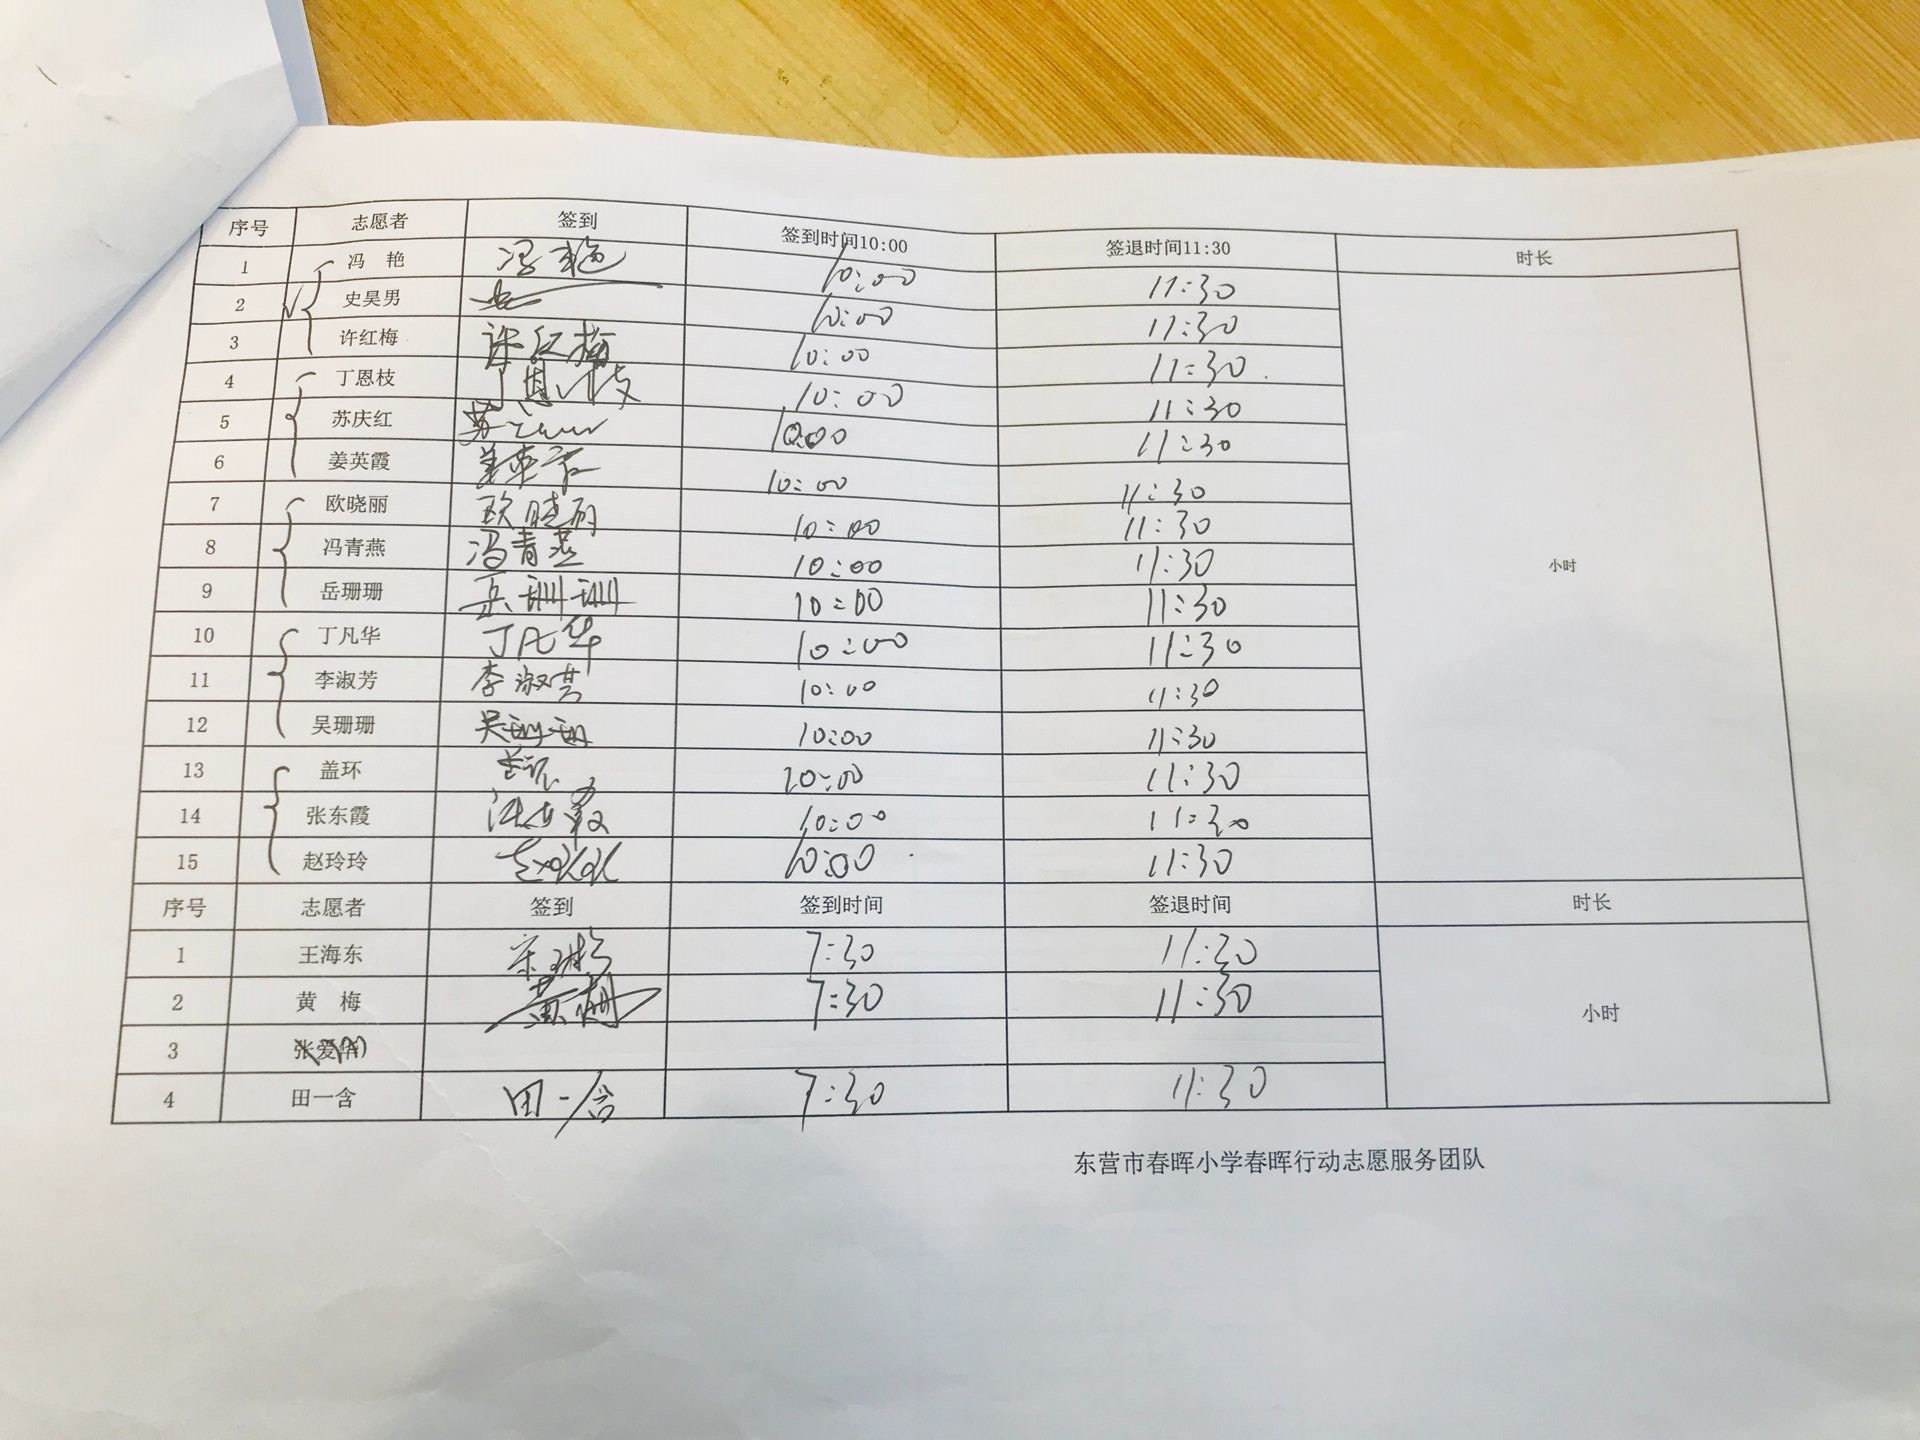 序号 志愿者 签到 签到时间10:00 签退时间11:30 时长
1 冯 艳 冯艳 10:00 11:30
2 史昊男 10:00 11:30
3 许红梅 许红梅 10:00 11:30
4 丁恩枝 丁恩枝 10:00 11:30
5 苏庆红 苏 10:00 11:30
6 姜英霞 姜英霞 10:00 11:30
7 欧晓丽 欧晓丽 10:00 11:30
8 冯青燕 冯青燕 10:00 11:30 小时
9 岳珊珊 岳珊珊 10:00 11:30
10 丁凡华 丁凡华 10:00 11:30
11 李淑芳 李淑芳 10:00 11:30
12 吴珊珊 吴珊珊 10:00 11:30
13 盖环 盖环 10:00 11:30
14 张东霞 张东霞 10:00 11:30
15 赵玲玲 赵玲玲 10:00 11:30
序号 志愿者 签到 签到时间 签退时间 时长
1 王海东 7:30 11:30
2 黄 梅 黄梅 7:30 11:30 小时
3 张爱华
4 田一含 田一含 7:30 11:30
东营市春晖小学春晖行动志愿服务团队